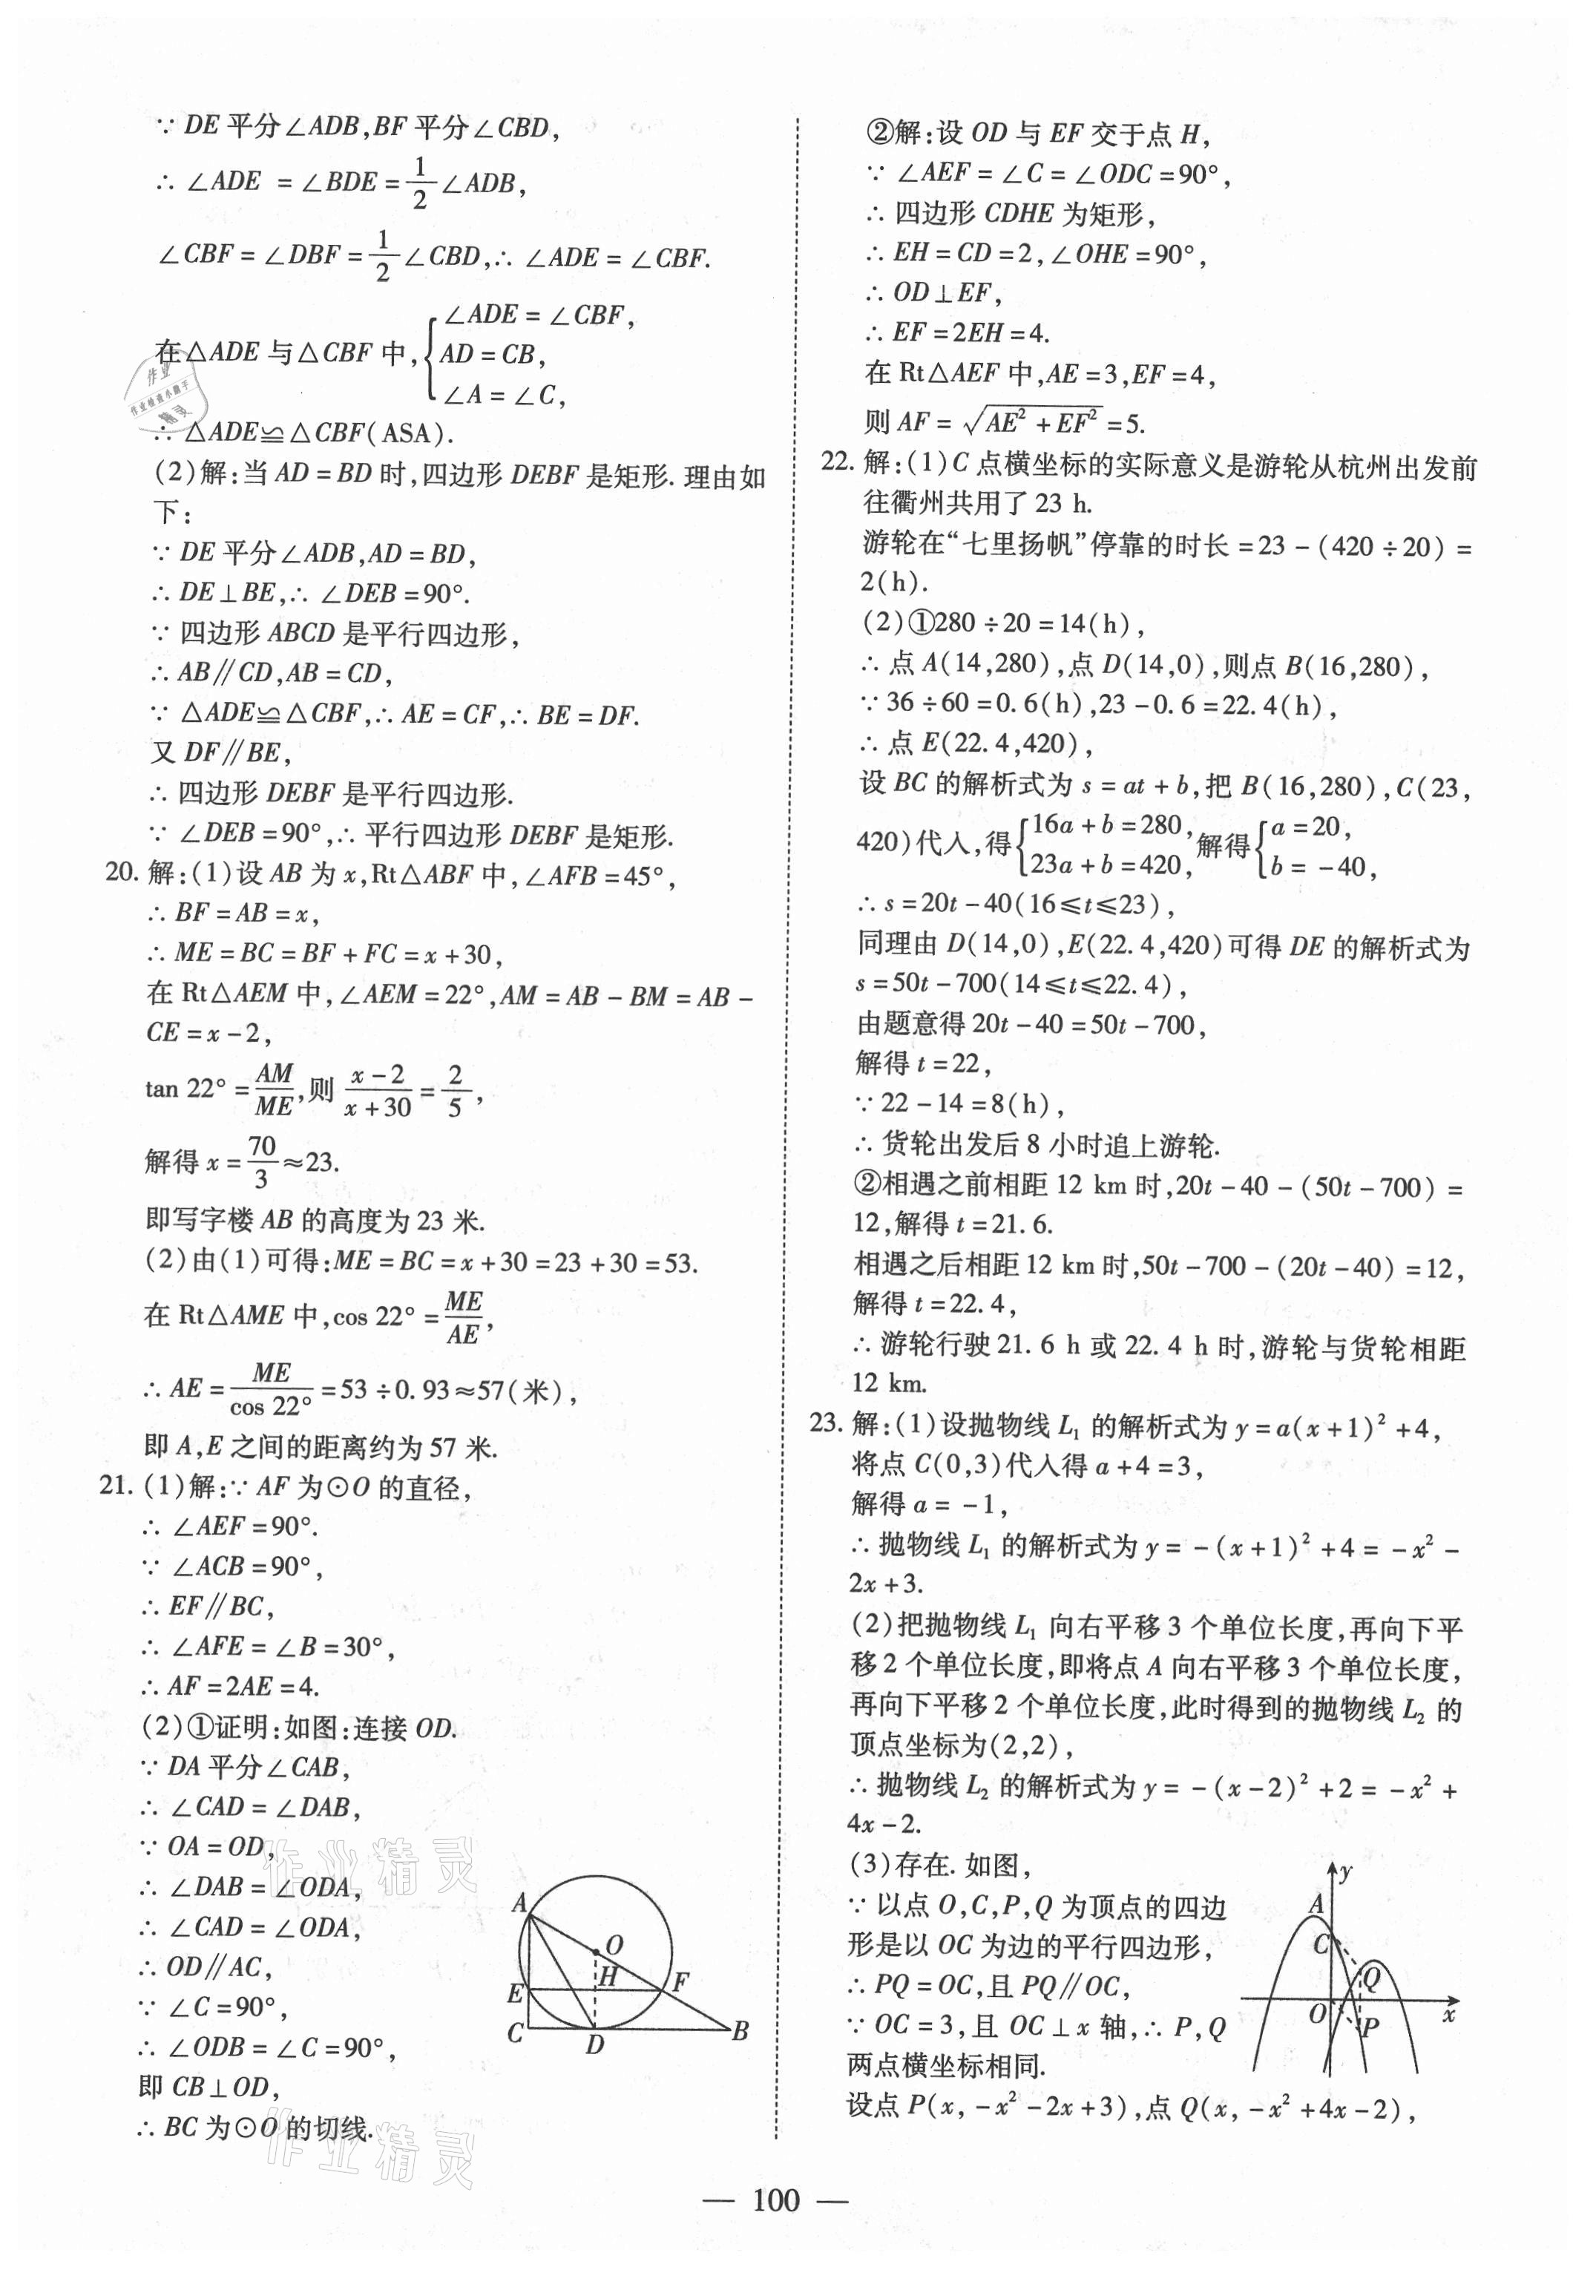 ∵ DE 平分∠ADB,BF 平分∠CBD,
∴ ∠ADE = ∠BDE = 1/2 ∠ADB,
∠CBF = ∠DBF = 1/2 ∠CBD,∴ ∠ADE = ∠CBF.
在△ADE 与△CBF 中,{∠ADE = ∠CBF,
AD = CB,
∠A = ∠C,
∴ △ADE≌△CBF(ASA).
(2)解:当 AD = BD 时,四边形 DEBF 是矩形. 理由如
下:
∵ DE 平分∠ADB,AD = BD,
∴ DE⊥BE,∴ ∠DEB = 90°.
∵ 四边形 ABCD 是平行四边形,
∴ AB∥CD,AB = CD,
∵ △ADE≌△CBF,∴ AE = CF,∴ BE = DF.
又 DF∥BE,
∴ 四边形 DEBF 是平行四边形.
∵ ∠DEB = 90°,∴ 平行四边形 DEBF 是矩形.
20. 解:(1)设 AB 为 x,Rt△ABF 中,∠AFB = 45°,
∴ BF = AB = x,
∴ ME = BC = BF + FC = x + 30,
在 Rt△AEM 中,∠AEM = 22°,AM = AB - BM = AB -
CE = x - 2,
tan 22° = AM/ME,则 (x - 2)/(x + 30) = 2/5,
解得 x = 70/3 ≈23.
即写字楼 AB 的高度为 23 米.
(2)由(1)可得:ME = BC = x + 30 = 23 + 30 = 53.
在 Rt△AME 中,cos 22° = ME/AE,
∴ AE = ME/cos 22° = 53 ÷ 0.93≈57(米),
即 A,E 之间的距离约为 57 米.
21. (1)解:∵ AF 为⊙O 的直径,
∴ ∠AEF = 90°.
∵ ∠ACB = 90°,
∴ EF∥BC,
∴ ∠AFE = ∠B = 30°,
∴ AF = 2AE = 4.
(2)①证明:如图:连接 OD.
∵ DA 平分∠CAB,
∴ ∠CAD = ∠DAB,
∵ OA = OD,
∴ ∠DAB = ∠ODA,
∴ ∠CAD = ∠ODA,
∴ OD∥AC,
∵ ∠C = 90°,
∴ ∠ODB = ∠C = 90°,
即 CB⊥OD,
∴ BC 为⊙O 的切线.
A
O
H
F
E
C
D
B
②解:设 OD 与 EF 交于点 H,
∵ ∠AEF = ∠C = ∠ODC = 90°,
∴ 四边形 CDHE 为矩形,
∴ EH = CD = 2,∠OHE = 90°,
∴ OD⊥EF,
∴ EF = 2EH = 4.
在 Rt△AEF 中,AE = 3,EF = 4,
则 AF = √(AE² + EF²) = 5.
22. 解:(1)C 点横坐标的实际意义是游轮从杭州出发前
往衢州共用了 23 h.
游轮在“七里扬帆”停靠的时长 = 23 - (420 ÷ 20) =
2(h).
(2)①280 ÷ 20 = 14(h),
∴ 点 A(14,280),点 D(14,0),则点 B(16,280),
∵ 36 ÷ 60 = 0.6(h),23 - 0.6 = 22.4(h),
∴ 点 E(22.4,420),
设 BC 的解析式为 s = at + b,把 B(16,280),C(23,
420)代入,得{16a + b = 280, 23a + b = 420,解得{a = 20, b = -40,
∴ s = 20t - 40(16≤t≤23),
同理由 D(14,0),E(22.4,420)可得 DE 的解析式为
s = 50t - 700(14≤t≤22.4),
由题意得 20t - 40 = 50t - 700,
解得 t = 22,
∵ 22 - 14 = 8(h),
∴ 货轮出发后 8 小时追上游轮.
②相遇之前相距 12 km 时,20t - 40 - (50t - 700) =
12,解得 t = 21.6.
相遇之后相距 12 km 时,50t - 700 - (20t - 40) = 12,
解得 t = 22.4,
∴ 游轮行驶 21.6 h 或 22.4 h 时,游轮与货轮相距
12 km.
23. 解:(1)设抛物线 L₁ 的解析式为 y = a(x + 1)² + 4,
将点 C(0,3)代入得 a + 4 = 3,
解得 a = -1,
∴ 抛物线 L₁ 的解析式为 y = -(x + 1)² + 4 = -x² -
2x + 3.
(2)把抛物线 L₁ 向右平移 3 个单位长度,再向下平
移 2 个单位长度,即将点 A 向右平移 3 个单位长度,
再向下平移 2 个单位长度,此时得到的抛物线 L₂ 的
顶点坐标为(2,2),
∴ 抛物线 L₂ 的解析式为 y = -(x - 2)² + 2 = -x² +
4x - 2.
(3)存在. 如图,
∵ 以点 O,C,P,Q 为顶点的四边
形是以 OC 为边的平行四边形,
∴ PQ = OC,且 PQ∥OC,
∵ OC = 3,且 OC⊥x 轴,∴ P,Q
两点横坐标相同.
设点 P(x, -x² - 2x + 3),点 Q(x, -x² + 4x - 2),
y
A
C
Q
O
P
x
— 100 —
作业
作业检查小助手
精灵
作业精灵
作业精灵